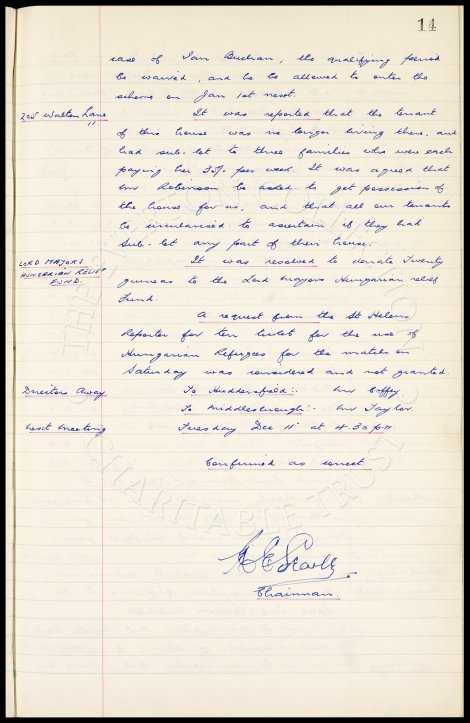 14
case of Ian Buchan, the qualifying period
be waived, and he be allowed to enter the
scheme on Jan 1st next.
205 Walton Lane
It was reported that the tenant
of this house was no longer living there, and
had sub-let to three families who were each
paying her 35/- per week. It was agreed that
Mr Robinson be asked to get possession of
the house for us, and that all our tenants
be circularised to ascertain if they had
Sub-let any part of their house.
LORD MAJORS
HUNGARIAN RELIEF
FUND.
It was resolved to donate Twenty
guineas to the Lord Mayors Hungarian relief
Fund.
A request from the St Helens
Reporter for ten tickets for the use of
Hungarian Refugees for the match on
Saturday was considered and not granted.
Directors Away
To Huddersfield:- Mr Coffey
To Middlesbrough:- Mr Taylor
Next Meeting
Tuesday Dec 11th at 4.30 p.m.
Confirmed as correct.
Chairman.
CHARITABLE TRUST